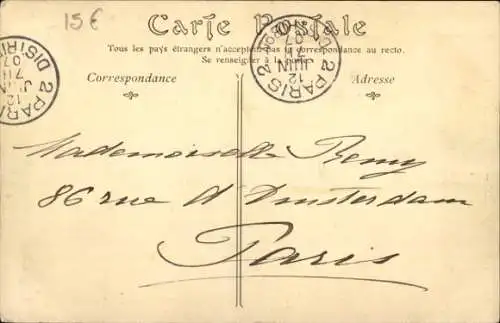 15€
Carte Postale
Tous les pays étrangers n'acceptent pas la correspondance au recto.
Se renseigner à la poste.
Correspondance
Adresse
2 PARIS 2
DISTRI
7
12
JUIN
07
2 PARIS 2
12
JUIN
07
Mademoiselle Remy
86 rue d'Amsterdam
Paris